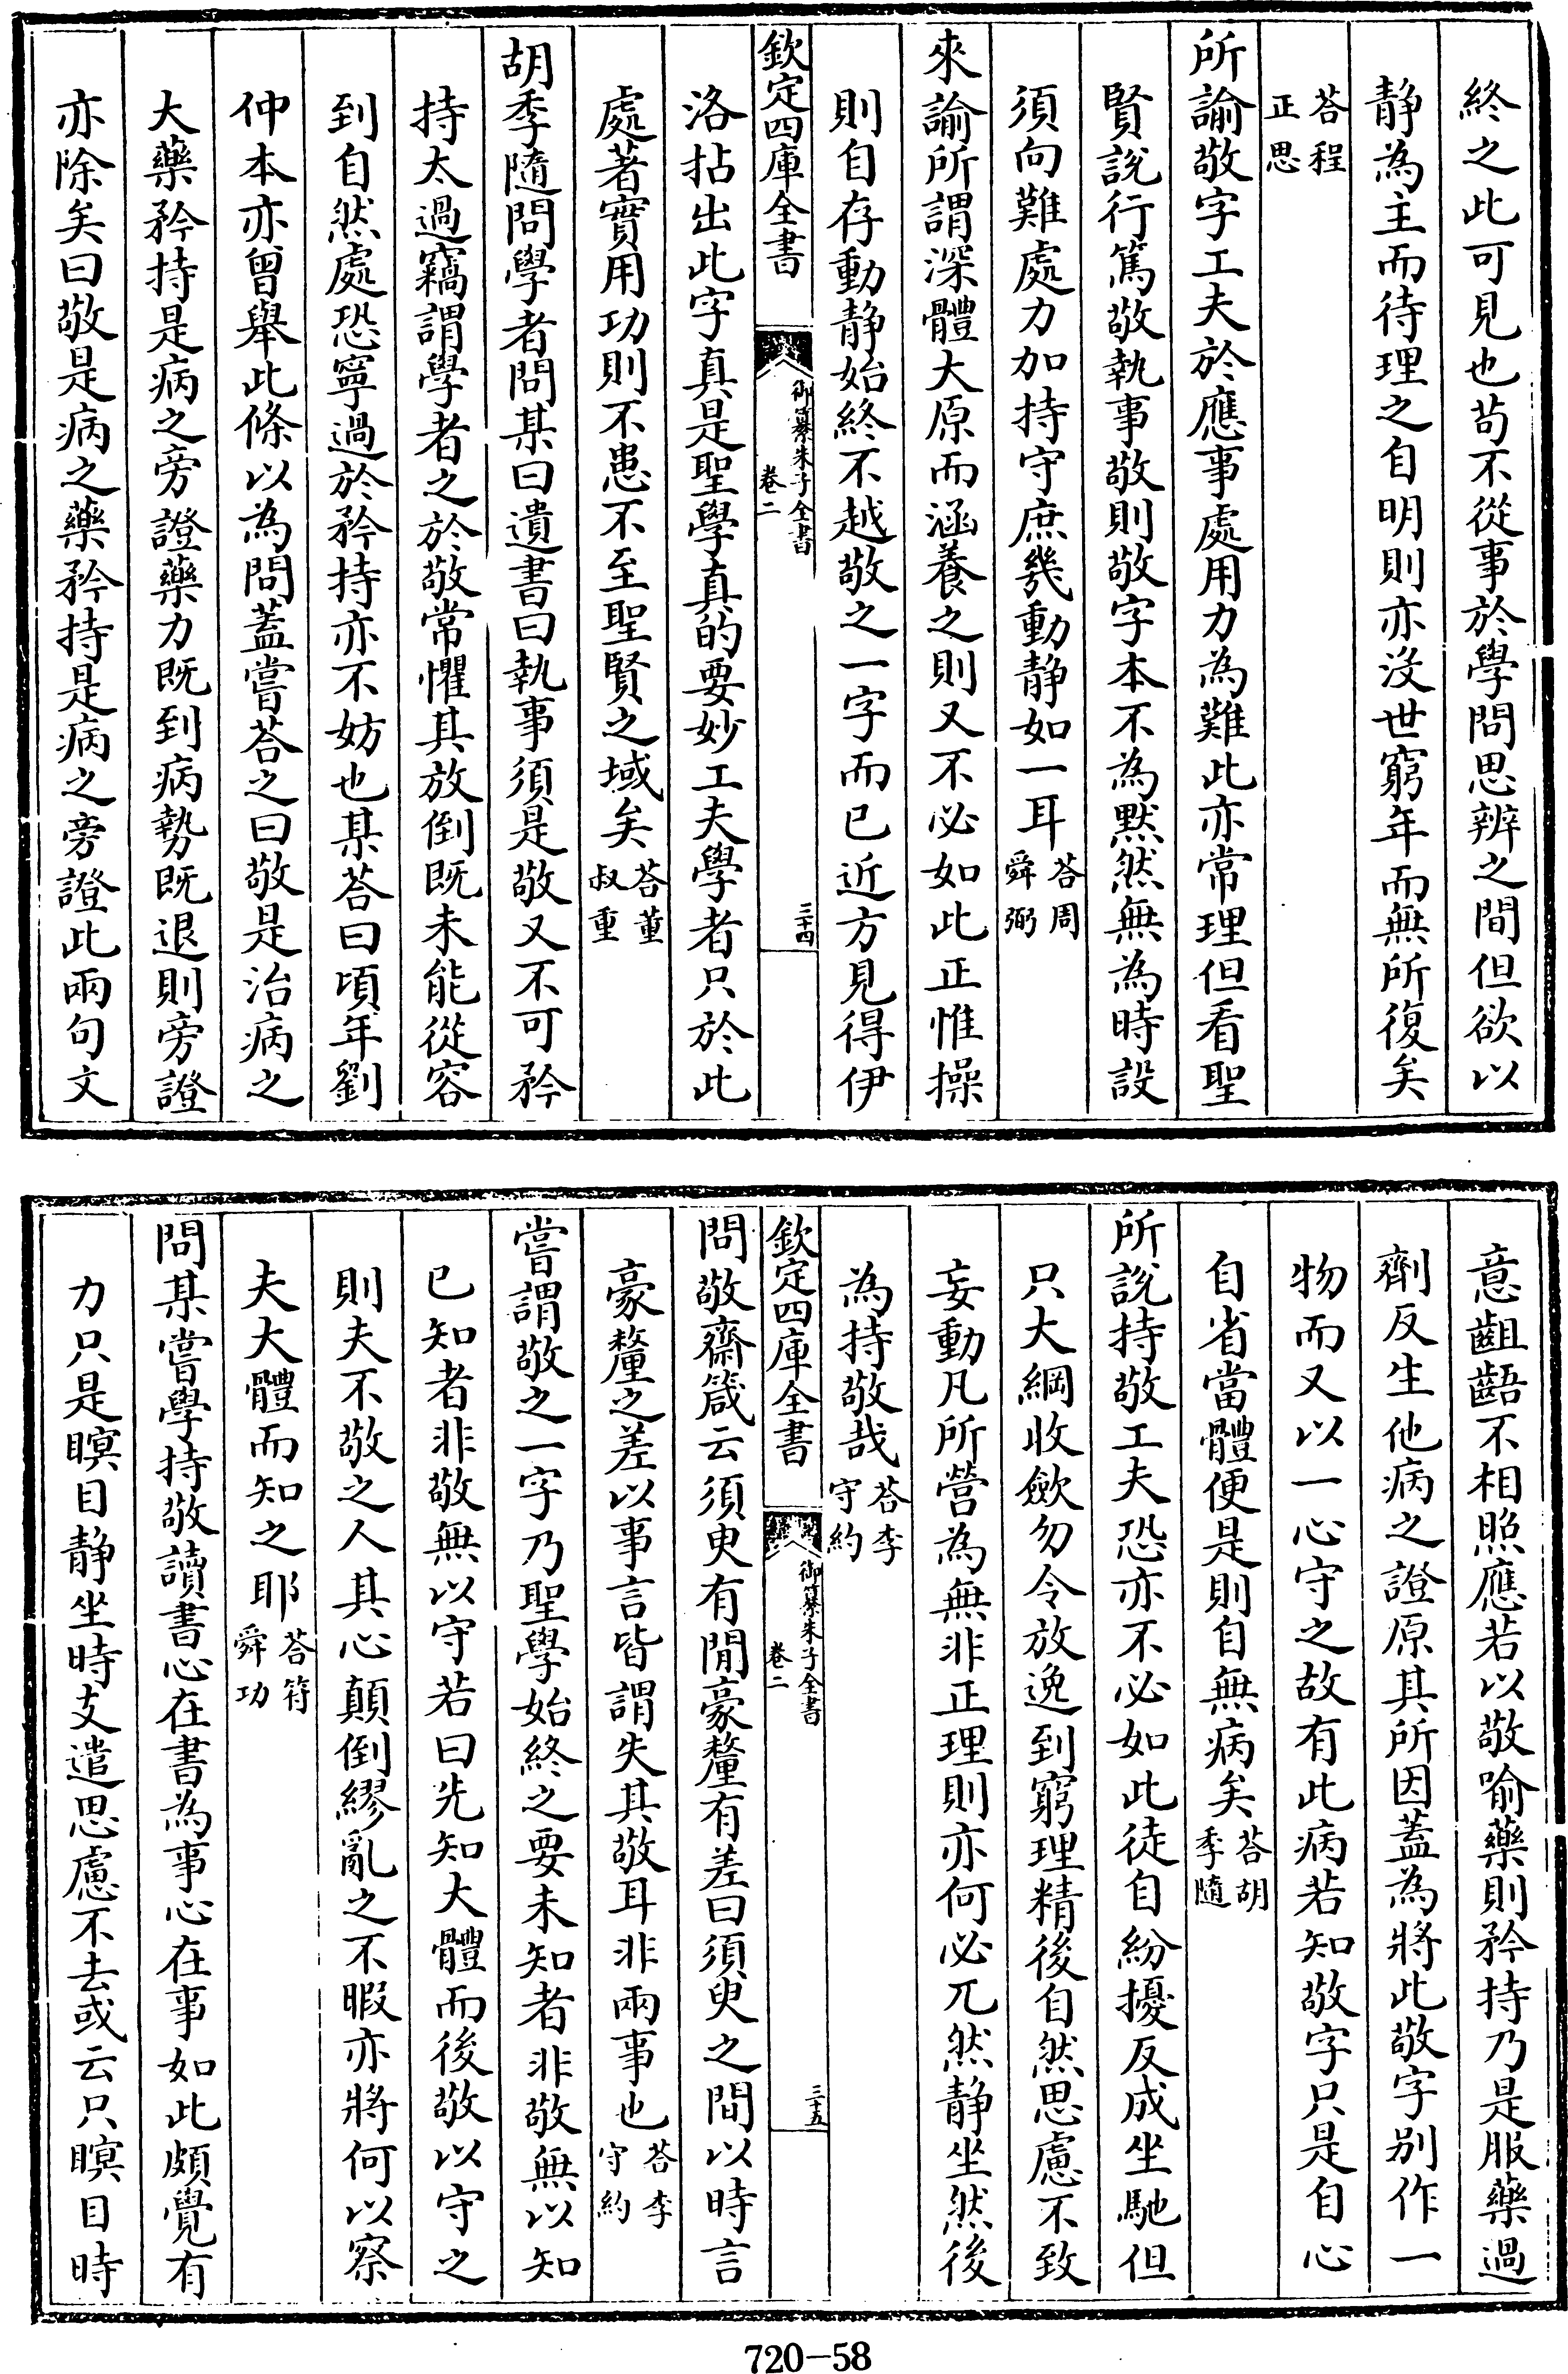 終之此可見也苟不從事於學問思辨之間但欲以
靜為主而待理之自明則亦沒世窮年而無所復矣
荅程正思
所諭敬字工夫於應事處用力為難此亦常理但看聖
賢說行篤敬執事敬則敬字本不為默然無為時設
須向難處力加持守庶幾動靜如一耳荅周舜弼
來諭所謂深體大原而涵養之則又不必如此正惟操
則自存動靜始終不越敬之一字而已近方見得伊
欽定四庫全書
御纂朱子全書
卷二
三十四
洛拈出此字真是聖學真的要妙工夫學者只於此
處著實用功則不患不至聖賢之域矣荅董叔重
胡季隨問學者問某曰遺書曰執事須是敬又不可矜
持太過竊謂學者之於敬常懼其放倒既未能從容
到自然處恐寧過於矜持亦不妨也某荅曰頃年劉
仲本亦曾舉此條以為問蓋嘗荅之曰敬是治病之
大藥矜持是病之旁證藥力既到病勢既退則旁證
亦除矣曰敬是病之藥矜持是病之旁證此兩句文
意齟齬不相照應若以敬喻藥則矜持乃是服藥過
劑反生他病之證原其所因蓋為將此敬字别作一
物而又以一心守之故有此病若知敬字只是自心
自省當體便是則自無病矣荅胡季隨
所說持敬工夫恐亦不必如此徒自紛擾反成坐馳但
只大綱收斂勿令放逸到窮理精後自然思慮不致
妄動凡所營為無非正理則亦何必兀然靜坐然後
為持敬哉荅李守約
欽定四庫全書
御纂朱子全書
卷二
三十五
問敬齋箴云須臾有間豪釐有差曰須臾之間以時言
豪釐之差以事言皆謂失其敬耳非兩事也荅李守約
嘗謂敬之一字乃聖學始終之要未知者非敬無以知
已知者非敬無以守若曰先知大體而後敬以守之
則夫不敬之人其心顛倒繆亂之不暇亦將何以察
夫大體而知之耶荅符舜功
問某嘗學持敬讀書心在書為事心在事如此頗覺有
力只是瞑目靜坐時支遣思慮不去或云只瞑目時
720-58